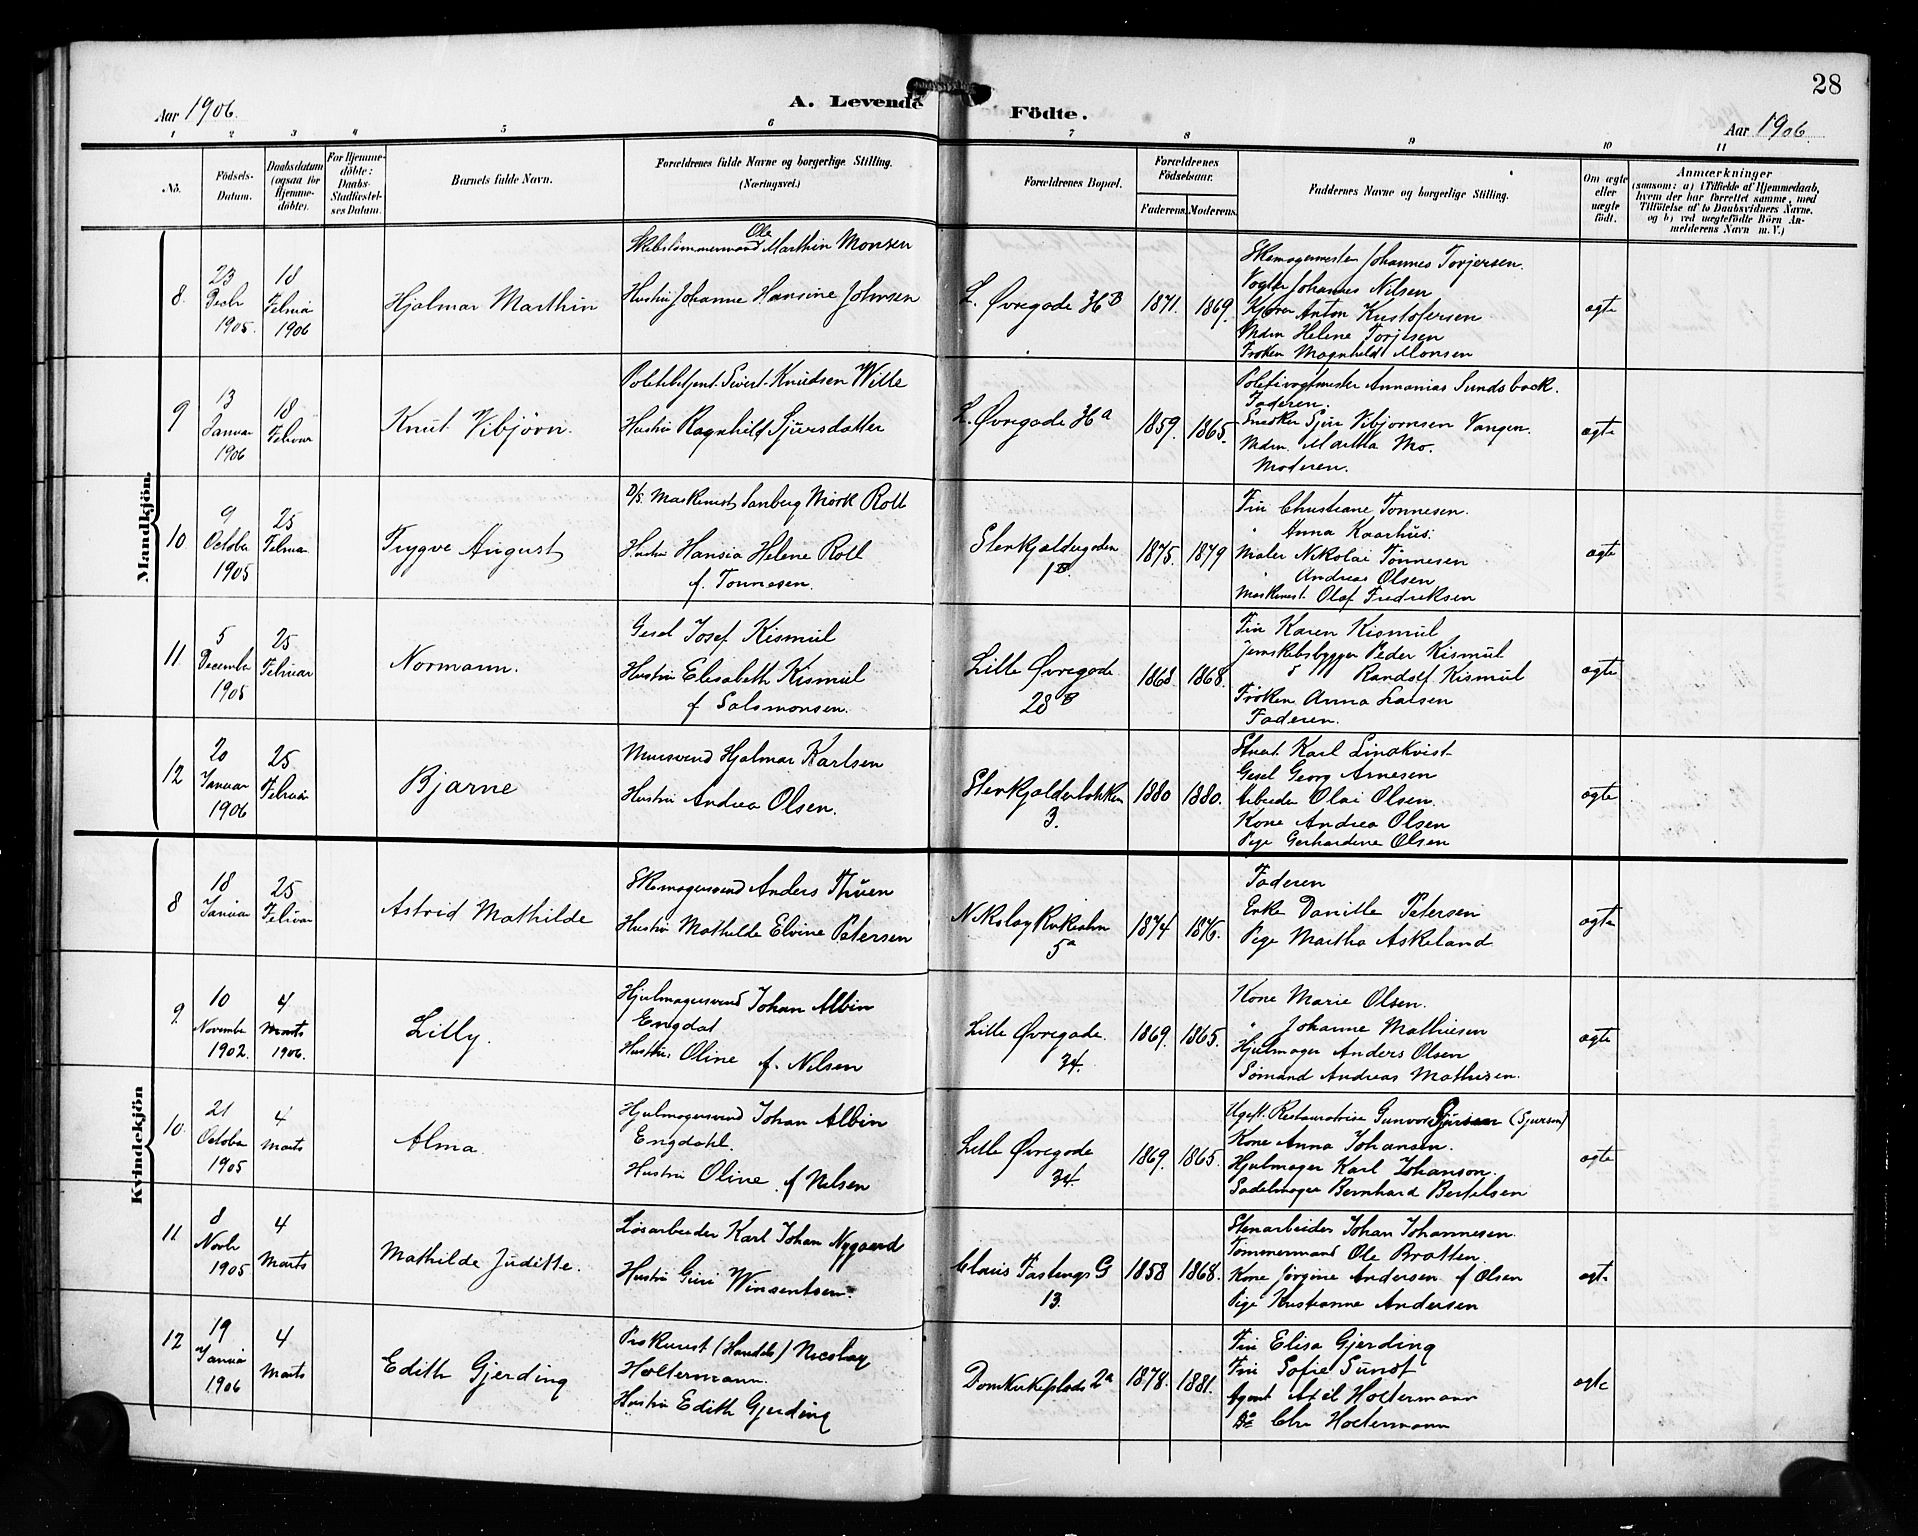 28
Aar 1906.
A. Levende Födte.
Aar 1906.
1 2 3 4 5 6 7 8 9 10 11
No.
Födsels-Datum.
Daabsdatum (ogsaa for Hjemme-döbte).
For Hjemme-döbte: Daabs-Stadfæstel-ses Datum.
Barnets fulde Navn.
Forældrenes fulde Navne og borgerlige Stilling. (Næringsvei.)
Forældrenes Bopæl.
Forældrenes Födselsaar.
Faderens. Moderens.
Faddernes Navne og borgerlige Stilling.
Om ægte eller uægte födt.
Anmærkninger
(saasom: a) i Tilfælde af Hjemmedaab,
hvem der har forrettet samme, med
Tilföielse af to Daabsvidners Navne.
og b) ved uægtefödte Börn An-
melderens Navn m. V.)
Mandkjön.
8.
23 Decbr 1905.
18 Februar 1906
Hjalmar Marthin
Skibstömmermand Ole Marthin Monsen
Hustru Johanne Hansine Johnsen
L. Øvregade 36 B
1871. 1869.
Skomagermester Johannes Torjersen.
Vogter Johannes Nilsen
Kjører Anton Kristofersen
Mdm Helene Torjesen
Frøken Magnhild Monsen
ægte
9
13 Januar 1906
18 Februar
Knut Vibjörn.
Politibetjent Sivert Knudsen Wille
Hustru Ragnhild Sjursdatter
L. Øvregade 36 a
1859. 1865.
Politivagtmester Annanias Sundsback.
Faderen.
Snedker Sjur Vibjørnsen Vangen.
Mdm. Martha Mo.
Moderen.
ægte
10.
9 October 1905
25 Februar
Trygve August
D/S. Maskinist Sanberg Mörk Roll
Hustru Hansia Helene Roll
f. Tonnesen.
Stenkjeldergaden 1 B.
1875. 1879
Fru Christiane Tonnesen.
" Anna Kaarhus.
Maler Nikolai Tönnesen
Andreas Olsen
Maskinist. Olaf Fredriksen
ægte
11
5 December 1905
25 Februar
Normann.
Gesel Josef Kismul
Hustru Elisabeth Kismul
f Salomonsen.
Lille Øvregade 28 B
1868 1868.
Fru Karen Kismul
Jernskibsbygger Peder Kismul
Randolf Kismul
Fröken Anna Larsen
Faderen.
ægte
12
20 Januar 1906
25 Februar
Bjarne
Mursvend Hjalmar Karlsen
Hustru Andrea Olsen.
Stenkjelderbakken 3.
1880 1880.
Stuert Karl Lindkvist
Gesel Georg Arnesen
Arbeider Olai Olsen.
Kone Andrea Olsen
Pige Gerhardine Olsen
ægte
Kvindekjön
8
18 Januar
25 Februar
Astrid Mathilde
Skomagersvend Anders Thuen
Hustru Mathilde Elvine Petersen
Nikolay Kirkealm 5 a
1874 1876.
Faderen
Enke Danitle Petersen
Pige Martha Askeland
ægte
9
10 November 1902.
4 Marts 1906.
Lilly.
Hjulmagersvend Johan Albin
Engdal
Hustru Oline f. Nilsen
Lille Øvregade. 34.
1869. 1865.
Kone Marie Olsen.
" Johanne Mathiesen
Hjulmager Anders Olsen
Sömand Andreas Mathisen.
ægte
10.
21 October 1905
4 Marts
Alma.
Hjulmagersvend Johan Albin
Engdahl.
Hustru Oline f Nilsen
Lille Øvregade 34.
1869. 1865.
Ugift. Restauratrise Gunvor (Sjursen)
Kone Anna Johansen.
Hjulmager Karl Johanson.
Sadelmager Bernhard Bertelsen
ægte
11
8 Novbr 1905
4 Marts
Mathilde Juditte.
Lösarbeider Karl Johan Nygaard
Hustru Guri Winsentsen.
Claus Fastings G 13.
1858 1868.
Stenarbeider Johan Johannesen.
Tömmermand Ole Bratten.
Kone Jörgine Andersen f Olsen
Pige Kristianne Andersen
ægte
12
19 Januar 1906
4 Marts
Edith Gjerding
Prokurist (Handels) Nicolay
Holtermann.
Hustru Edith Gjerding
Domkirkeplads 2 a
1878. 1881.
Fru Elisa Gjerding
Fru Sofie Sundt
Agent Axil Holtermann
Do Chr Holtermann
ægte